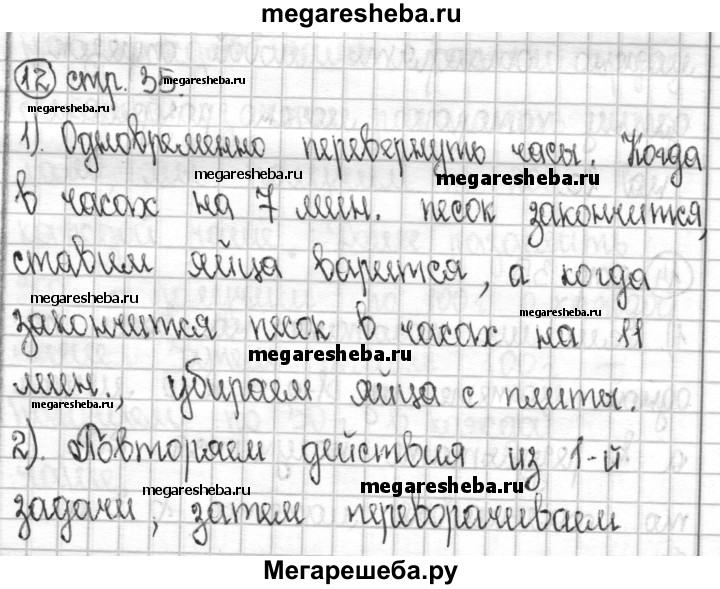 megaresheba.ru
12 стр. 35. megaresheba.ru
megaresheba.ru megaresheba.ru
1). Одновременно перевернуть часы. Когда
megaresheba.ru megaresheba.ru
в часах на 7 мин. песок закончится,
ставим яйца варится, а когда
megaresheba.ru megaresheba.ru
закончится песок в часах на 11
megaresheba.ru
мин., убираем яйца с плиты.
megaresheba.ru
2). Повторяем действия из 1-й
megaresheba.ru megaresheba.ru
задачи, затем переворачиваем
Мегарешеба.ру